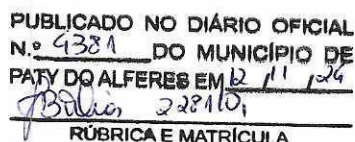 PUBLICADO NO DIÁRIO OFICIAL
N.º 4381 DO MUNICÍPIO DE
PATY DO ALFERES EM 12 / 11 / 24
RÚBRICA E MATRÍCULA